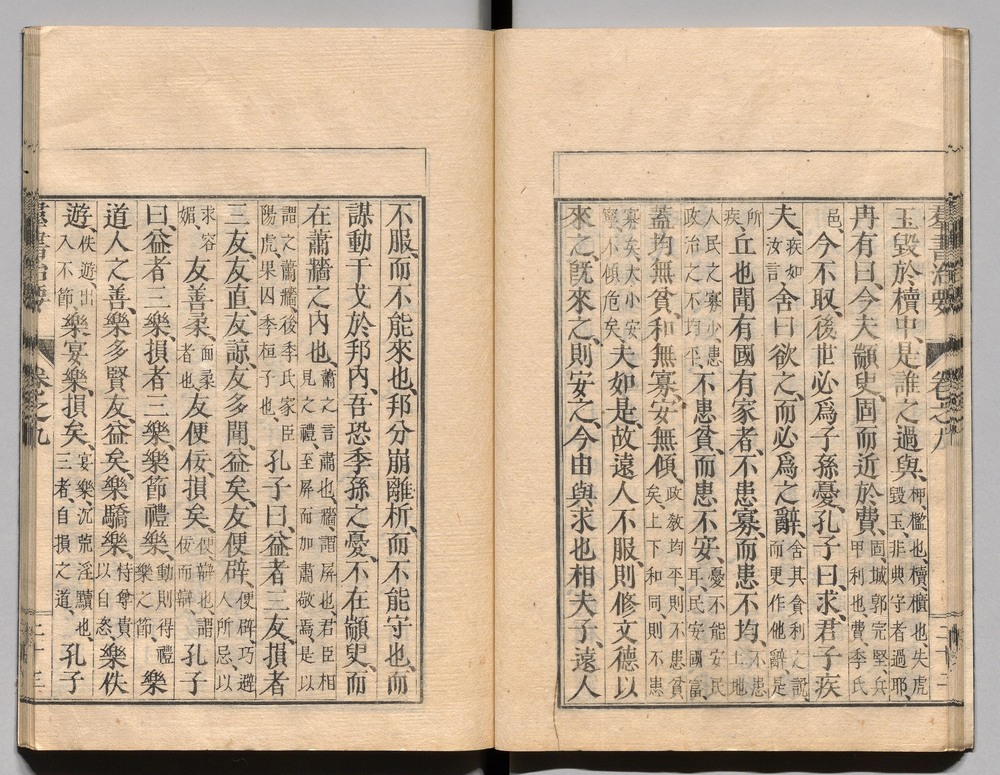 羣書治要 卷之九 二十二
玉毀於櫝中、是誰之過與、柙、檻也、櫝、櫃也、失虎毀玉、非典守者過耶、
冉有曰、今夫顓臾、固而近於費、固、城郭完堅、兵甲利也、費、季氏
邑、今不取、後世必爲子孫憂、孔子曰、求、君子疾
夫、疾如汝言、舍曰欲之、而必爲之辭、舍其貪利之說、而更作他辭、是
所疾、丘也聞有國有家者、不患寡、而患不均、不患土地
人民之寡少、患政治之不均平、不患貧、而患不安、憂不能安民耳、民安國富、
蓋均無貧、和無寡、安無傾、政教均平、則不患貧矣、上下和同、則不患
寡矣、大小安寧、不傾危矣、夫如是、故遠人不服、則修文德以
來之、既來之、則安之、今由與求也、相夫子、遠人
不服、而不能來也、邦分崩離析、而不能守也、而
謀動干戈於邦內、吾恐季孫之憂、不在顓臾、而
在蕭牆之內也、蕭之言肅也、牆、謂屏也、君臣相見之禮、至屏而加肅敬焉、是以
謂之蕭牆、後季氏家臣陽虎、果囚季桓子也、孔子曰、益者三友、損者
三友、友直、友諒、友多聞、益矣、友便辟、便辟巧避人所忌、以
求容媚、友善柔、面柔者也、友便佞、損矣、便辯也、謂佞而辯、孔子
曰、益者三樂、損者三樂、樂節禮樂、動則得禮樂之節、樂
道人之善、樂多賢友、益矣、樂驕樂、恃尊貴以自恣、樂佚
遊、佚遊、出入不節、樂宴樂、損矣、宴樂、沉荒淫黷也、三者、自損之道、孔子
羣書治要 卷之九 二十三